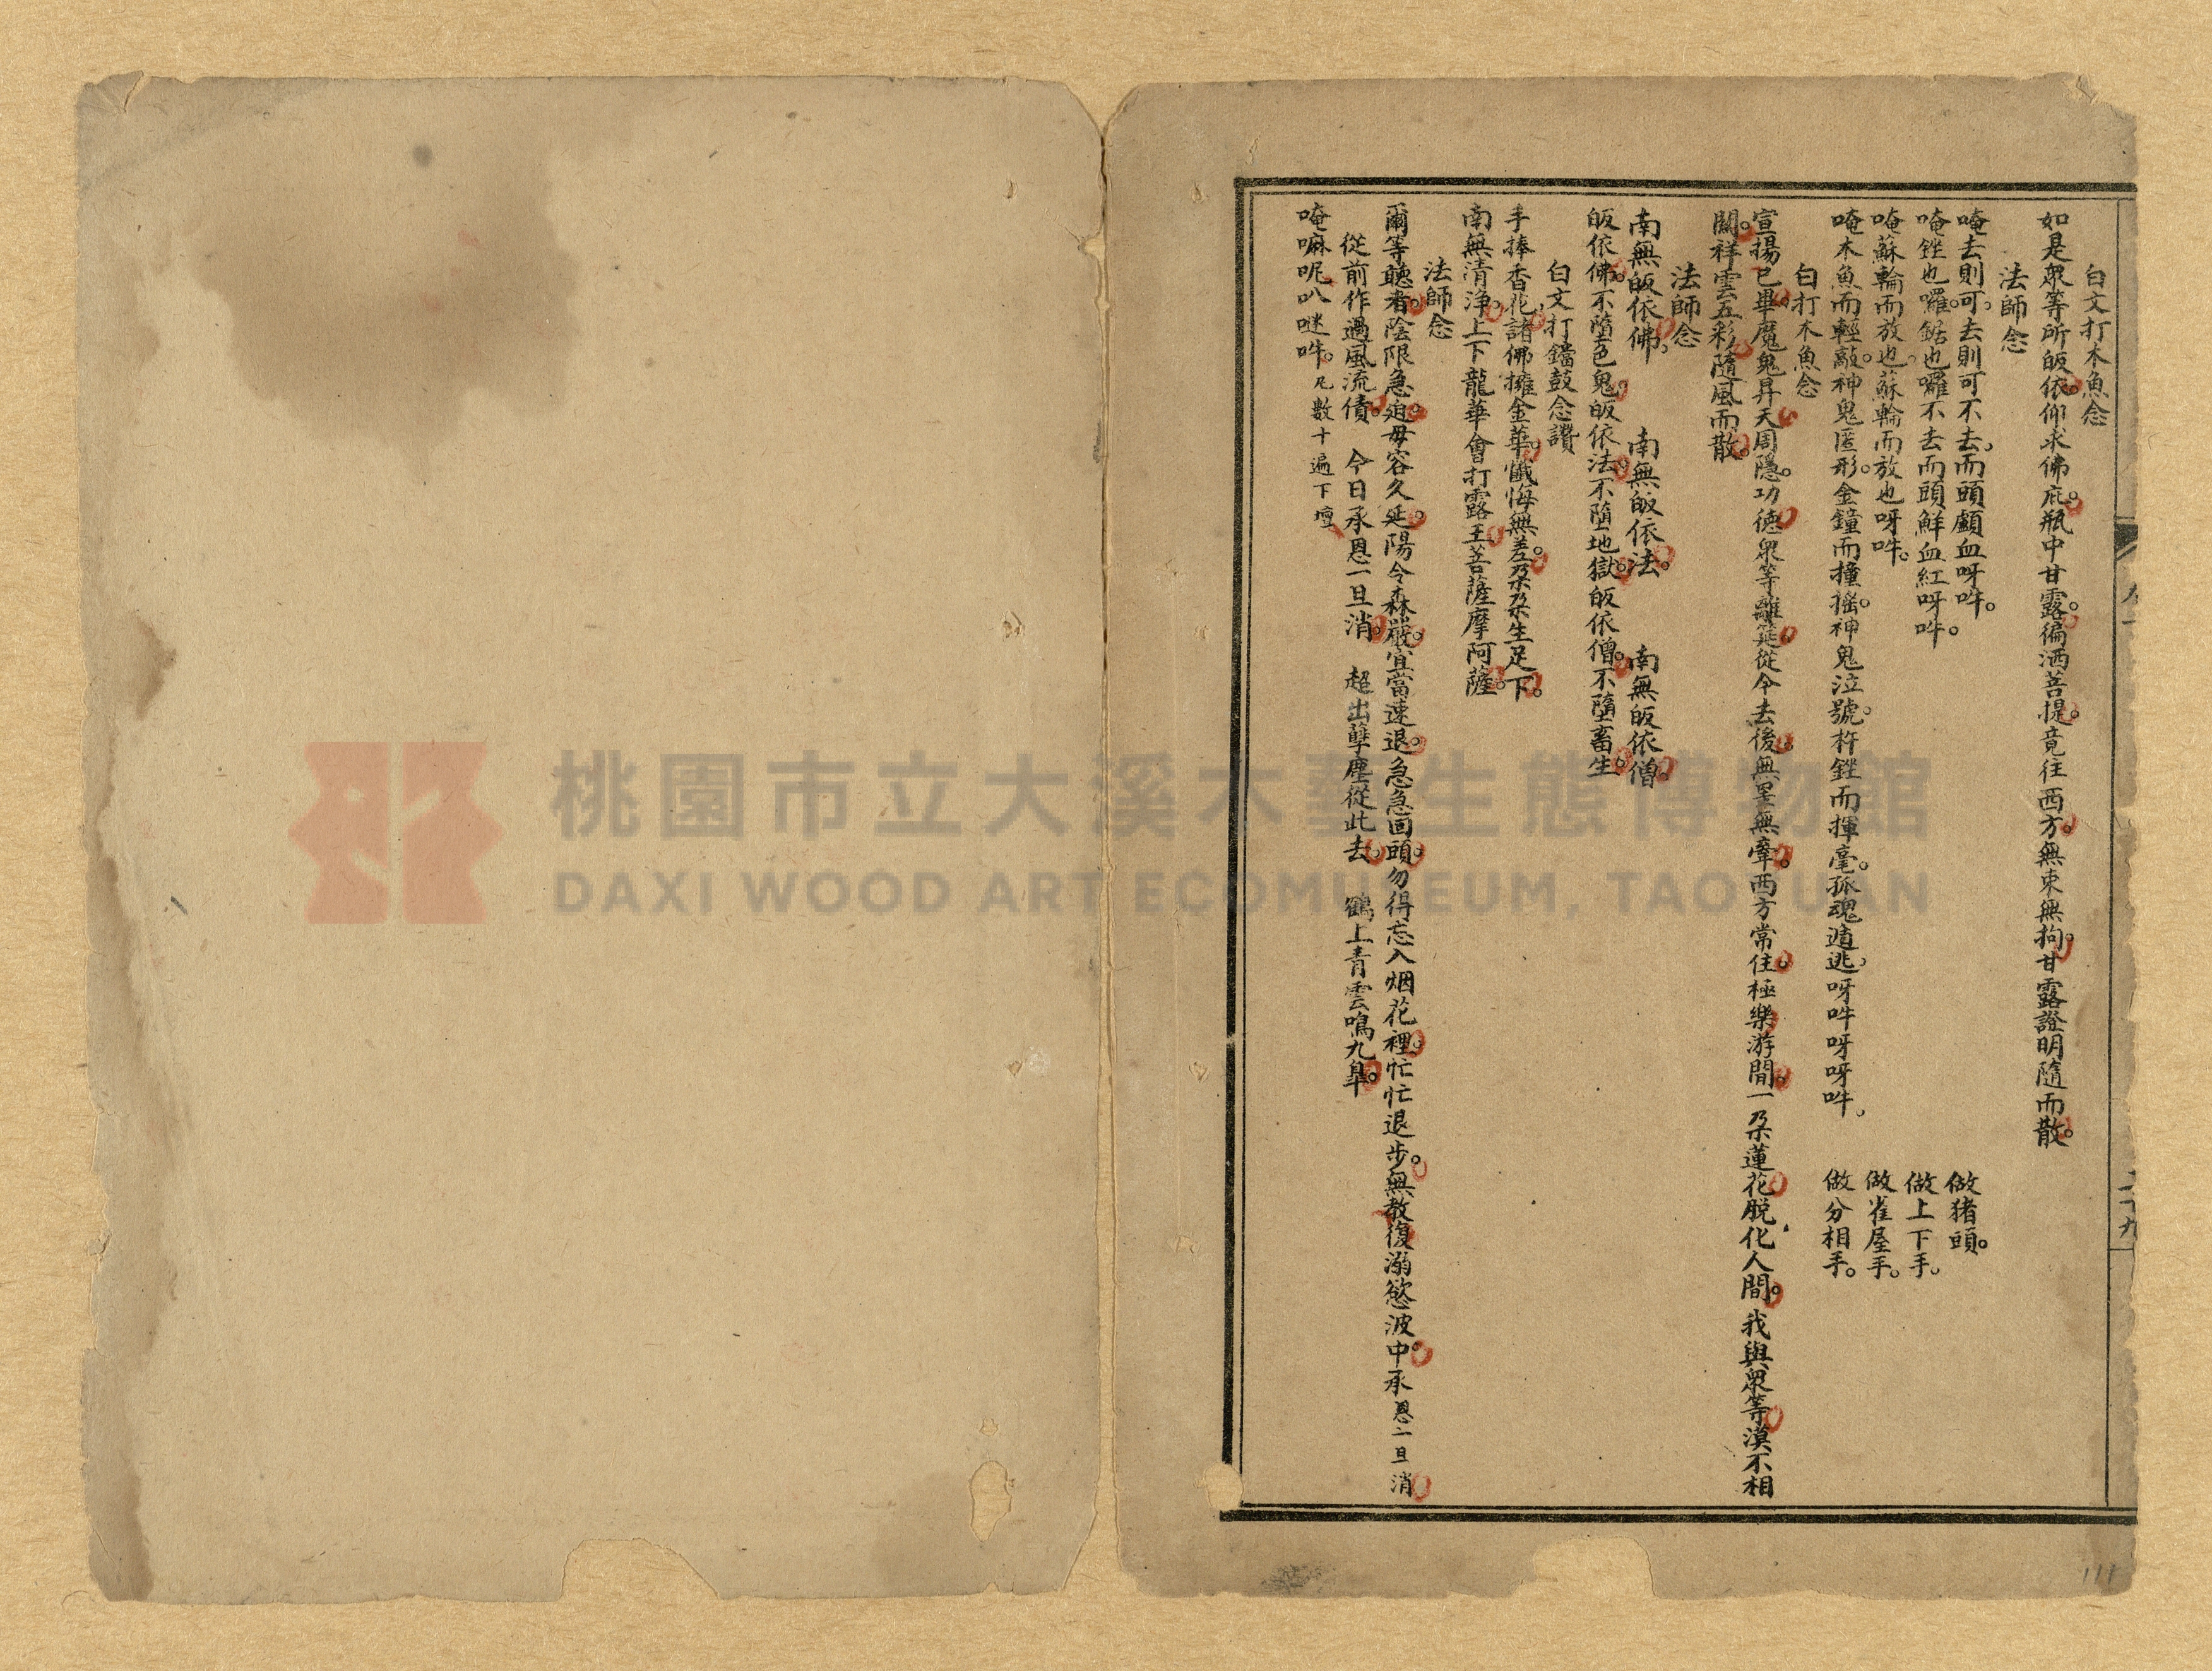 白文打木魚念
如是眾等所皈依。仰求佛庇。瓶中甘露。徧洒菩提。竟往西方。無束無拘。甘露證明隨而散。
法師念
唵去則可。去則可不去。而頭顱血呀吽。 做猪頭。
唵銼也囉。鋸也囉不去而頭鮮血紅呀吽。 做上下手。
唵蘇輪而放也。蘇輪而放也呀吽。 做雀屋手。
唵木魚而輕敲。神鬼匿形。金鐘而撞搖。神鬼泣號。杵銼而揮毫。孤魂遁逃。呀吽呀呀吽。 做分相手。
白打木魚念
宣揚已畢。魔鬼昇天。周隱。功德眾等離筵。從今去後。無罣無牽。西方常住。極樂游閒。一朶蓮花。脫化人間。我與眾等漠不相
關。祥雲五彩。隨風而散。
法師念
南無皈依佛。 南無皈依法。 南無皈依僧。
皈依佛。不墮色鬼。皈依法。不墮地獄。皈依僧。不墮畜生。
白文打鐺鼓念讚
手捧香花。諸佛擁金華。懺悔無差。朶朶生足下。
南無清淨。上下龍華會打露王菩薩摩阿薩。
法師念
爾等聽者。陰限急迫。毋容久延。陽令森嚴。宜當速退。急急回頭。勿得忘入烟花裡。忙忙退步。無教復溺慾波中。承恩一旦消
從前作過風流債。 今日承恩一旦消。 超出孽塵從此去。 鶴上青雲鳴九臯。
唵嘛呢叭㘈吽。凡數十遍下壇
二十九
111
桃園市立大溪木藝生態博物館
DAXI WOOD ART ECOMUSEUM, TAOYUAN